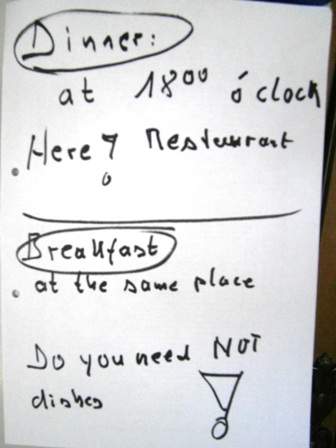 Dinner:
at 18⁰⁰ o'clock
Here ? Restaurant
Breakfast
at the same place
Do you need NOT
dishes !